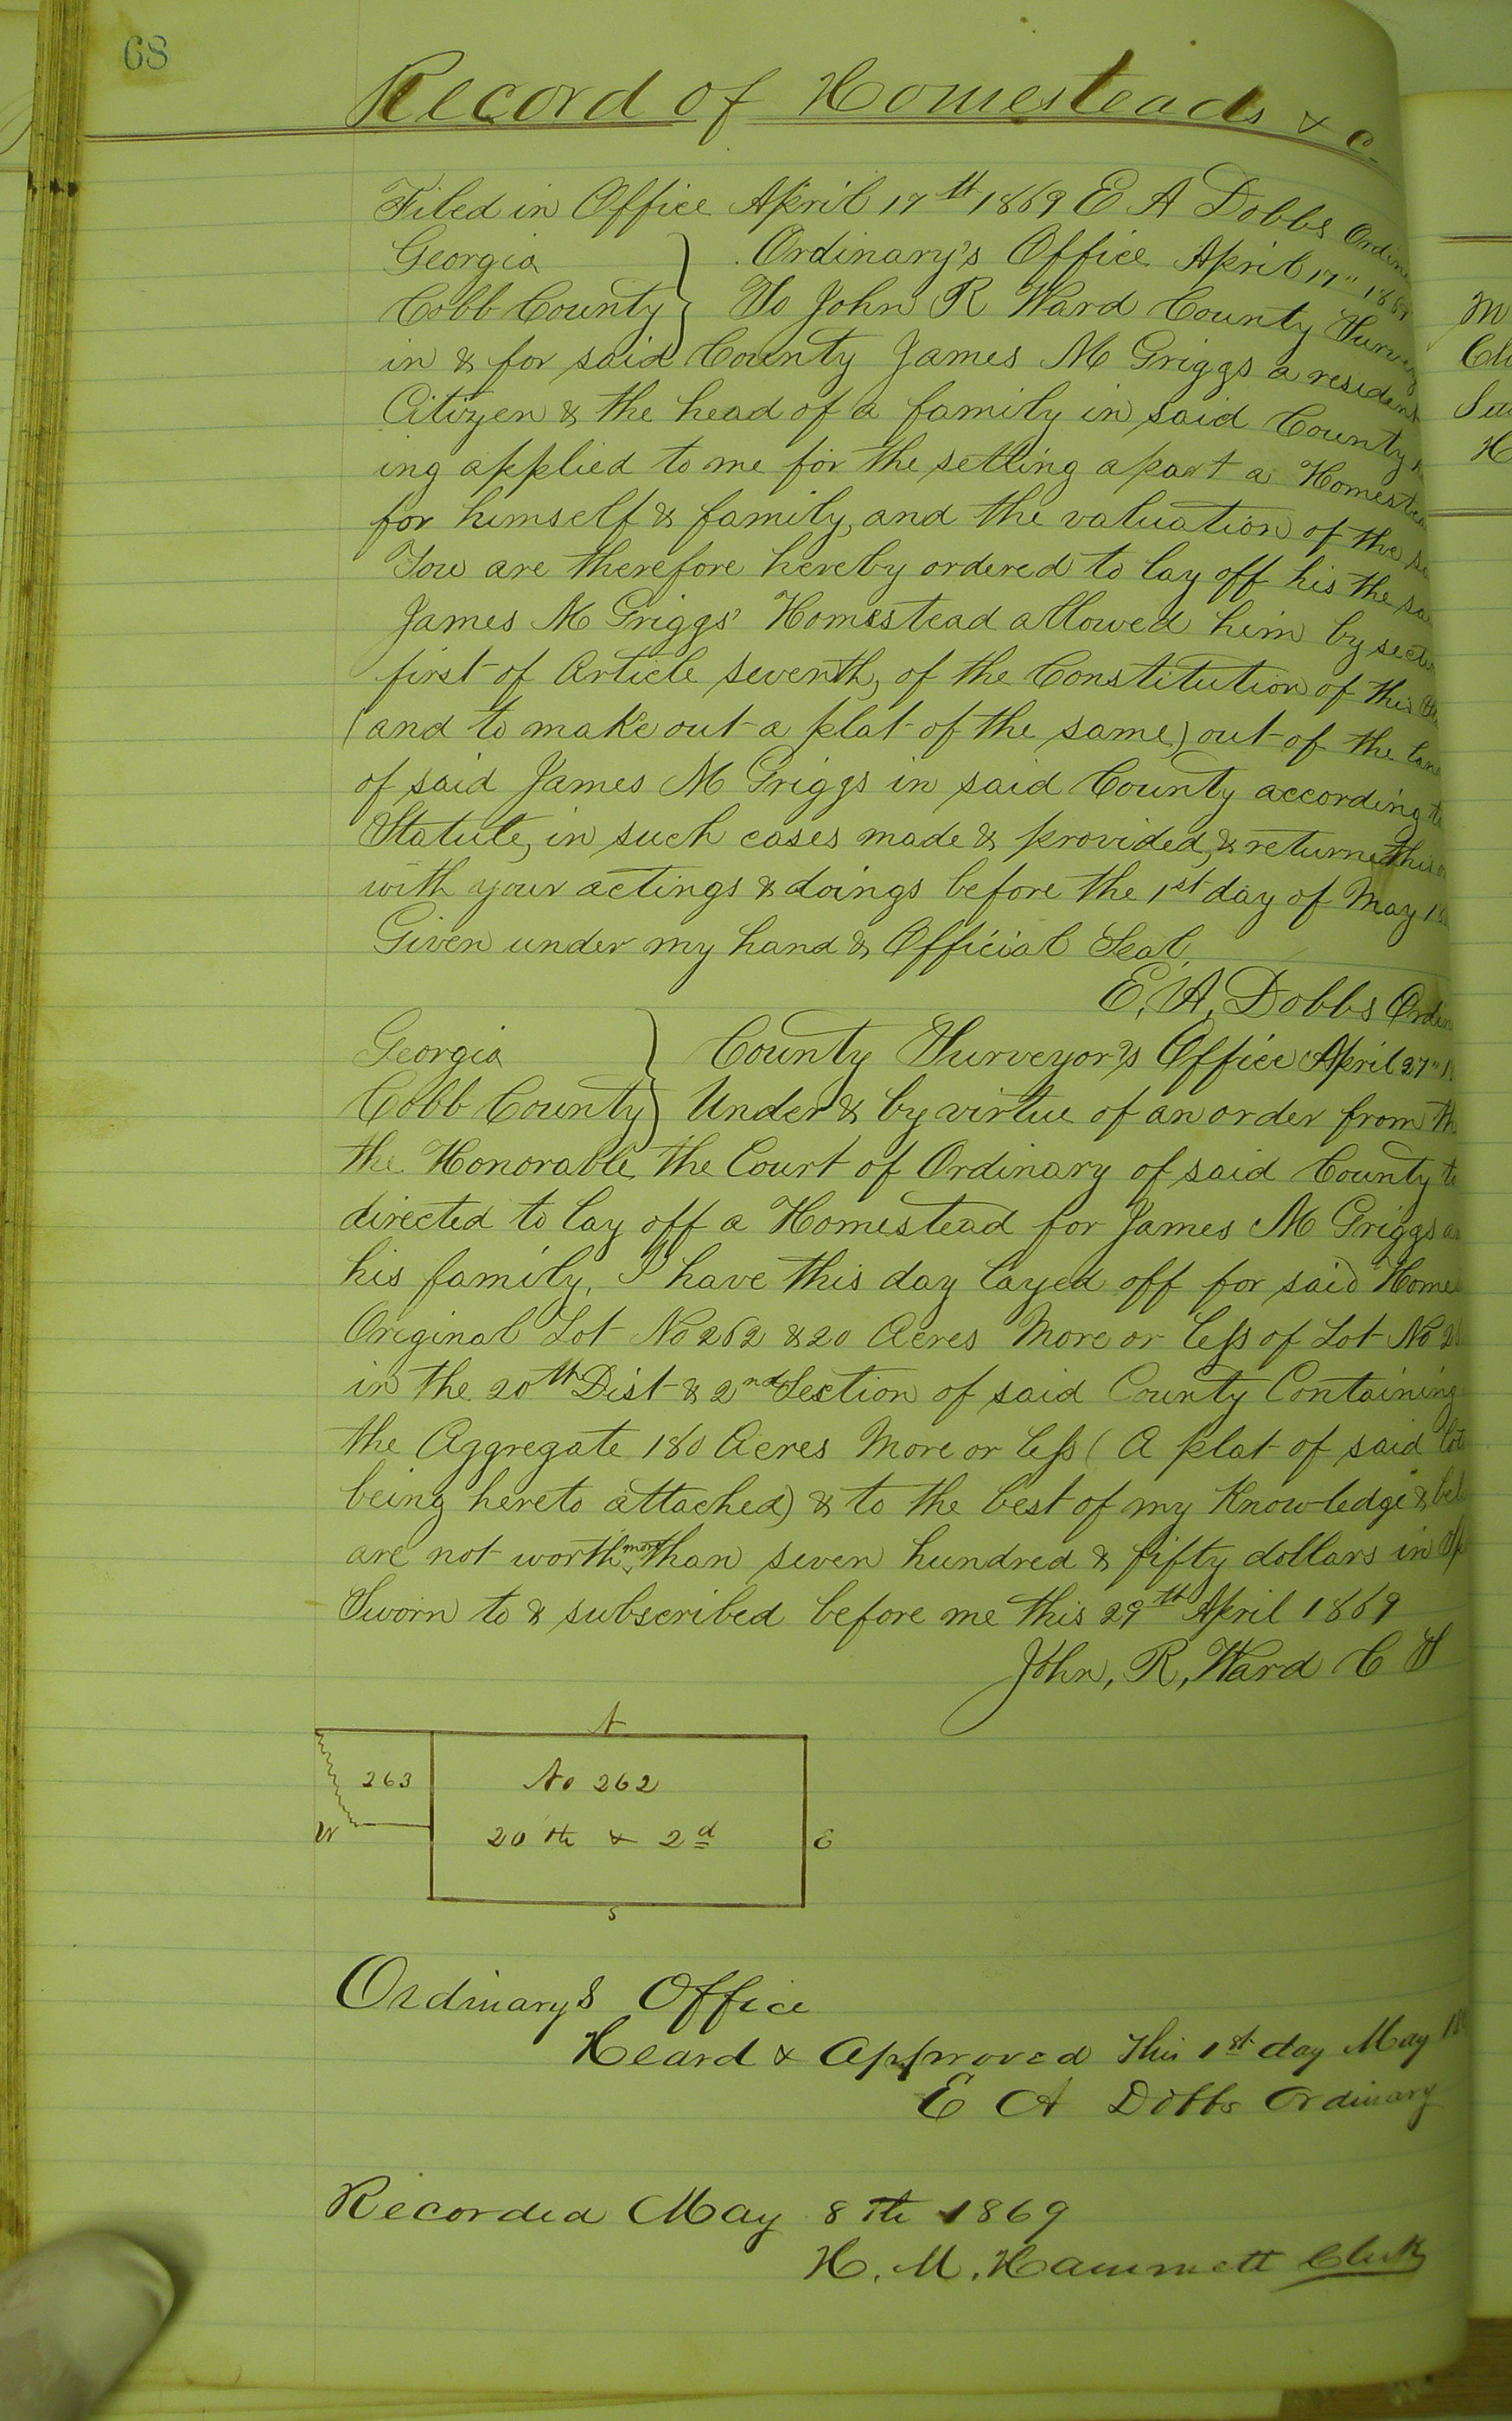 68
Record of Homesteads & c
Filed in Office April 17th 1869 E A Dobbs
Georgia } Ordinary's Office April 17" 1869
Cobb County } To John R Ward County
in & for said County James M Griggs a resident
Citizen & the head of a family in said County
ing applied to me for the setting apart a
for himself & family, and the valuation of the
You are therefore hereby ordered to lay off his the
James M Griggs' Homestead allowed him by
first of Article seventh, of the Constitution of this
(and to make out a plat of the same) out of the
of said James M Griggs in said County according
Statute, in such cases made & provided, & returned this
with your actings & doings before the 1st day of May
Given under my hand & Official Seal,
E, A, Dobbs
Georgia } County Surveyor's Office April 27"
Cobb County } Under & by virtue of an order from
the Honorable the Court of Ordinary of said County
directed to lay off a Homestead for James M Griggs
his family, I have this day layed off for said
Original Lot No 262 & 20 Acres More or less of Lot No
in the 20th Dist & 2nd Section of said County Containing
the Aggregate 180 Acres More or less (A plat of said
being hereto attached) & to the best of my Knowledge &
are not worth more than seven hundred & fifty dollars in
Sworn to & subscribed before me this 29th April 1869
John, R, Ward C S
N
263 No 262
W 20 th & 2d E
S
Ordinarys Office
Heard & Approved This 1st day May
E A Dobbs Ordinary
Recorded May 8th 1869
H. M. Hammett Clerk